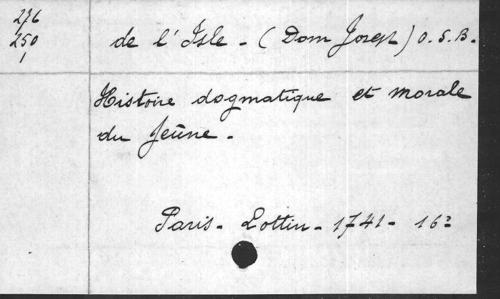 276
250
1
de l'Isle - (Dom Joseph) O.S.B.
Histoire dogmatique et morale
du Jeûne -
Paris - Lottin - 1741 - 16º